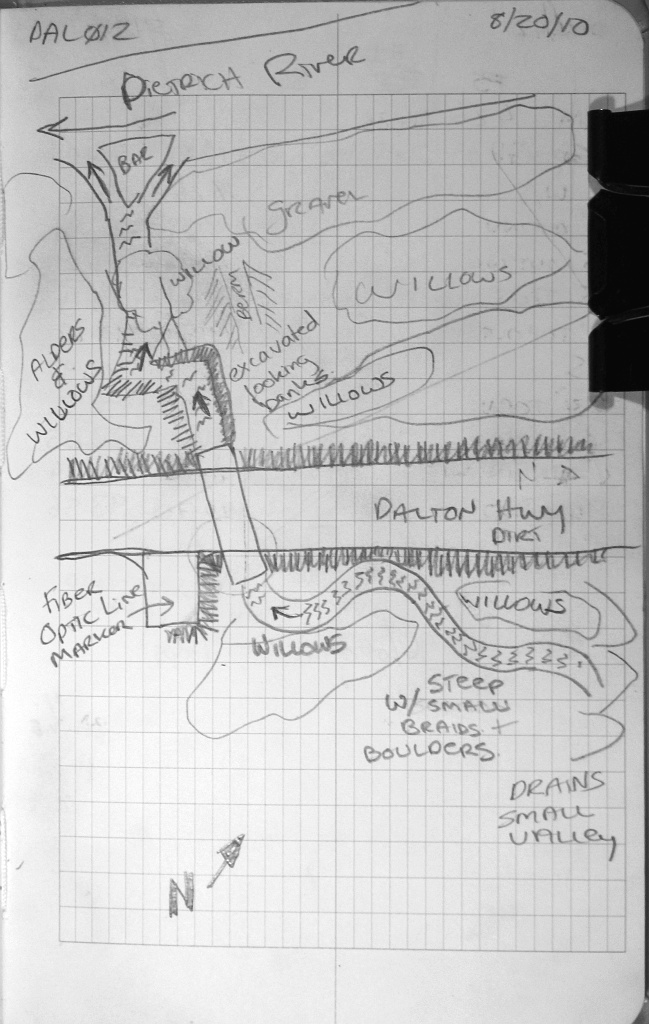 DALØ12
8/20/10
DIETRICH RIVER
BAR
GRAVEL
WILLOW
WILLOWS
bench
ALDERS
&
WILLOWS
excavated
looking
banks
WILLOWS
N
DALTON HWY
DIRT
FIBER
OPTIC LINE
MARKER
WILLOWS
WILLOWS
STEEP
W/ SMALL
BRAIDS +
BOULDERS.
DRAINS
SMALL
VALLEY
N